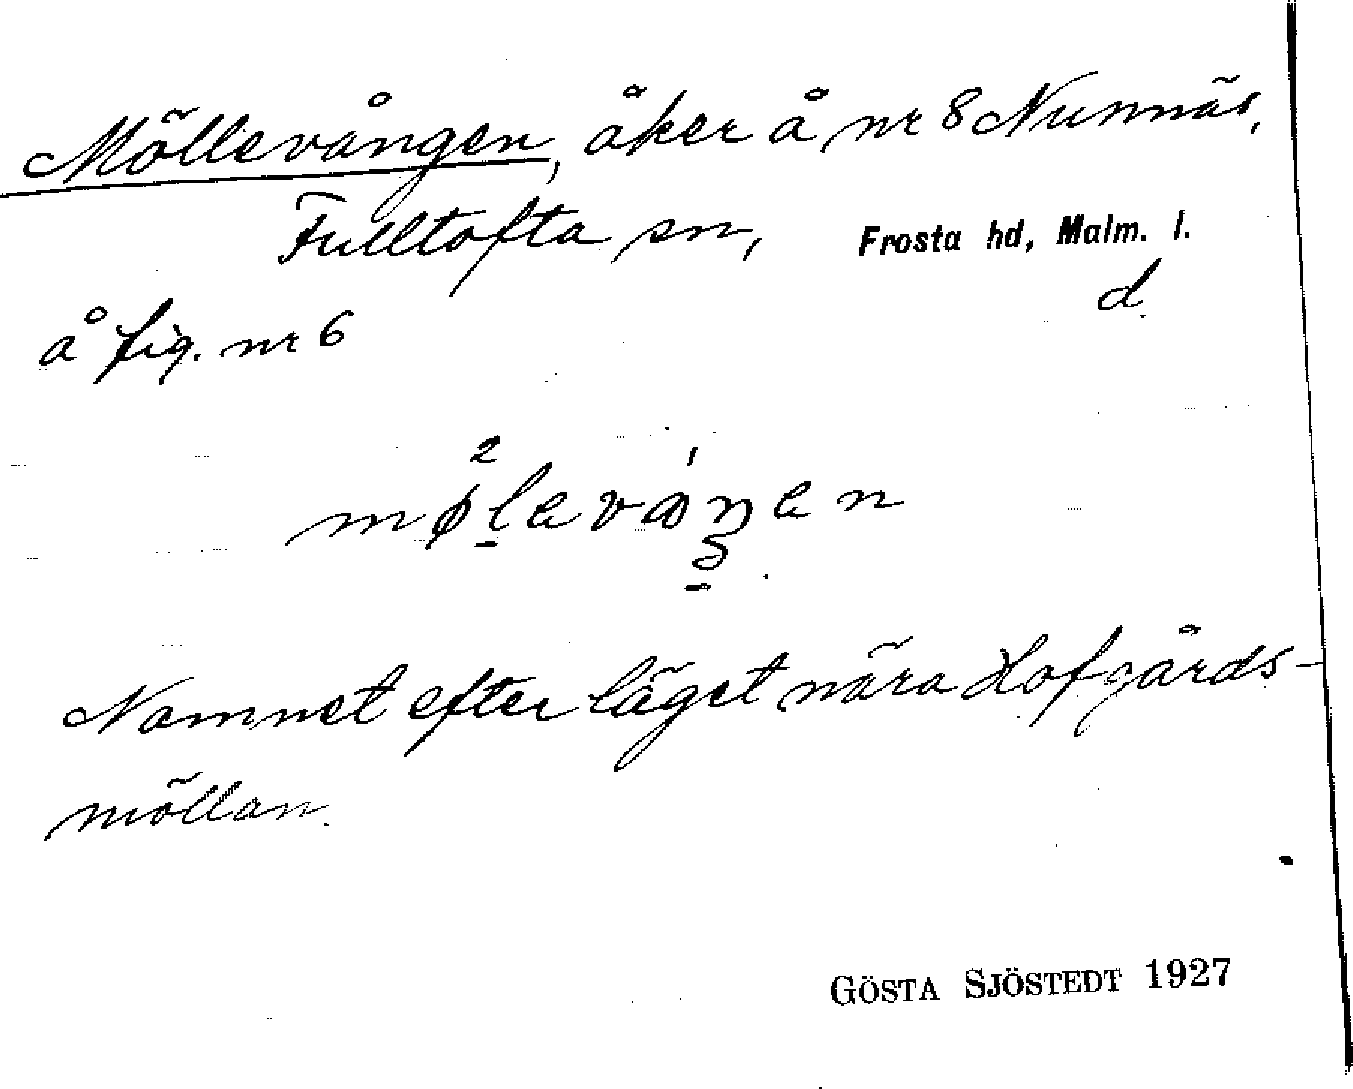 Möllevången, åker å nr 8 Nunnäs,
Fulltofta sn, Frosta hd, Malm. l.
d.
å fig. nr 6
Namnet efter läget nära Hofgårds-
möllan.
GÖSTA SJÖSTEDT 1927